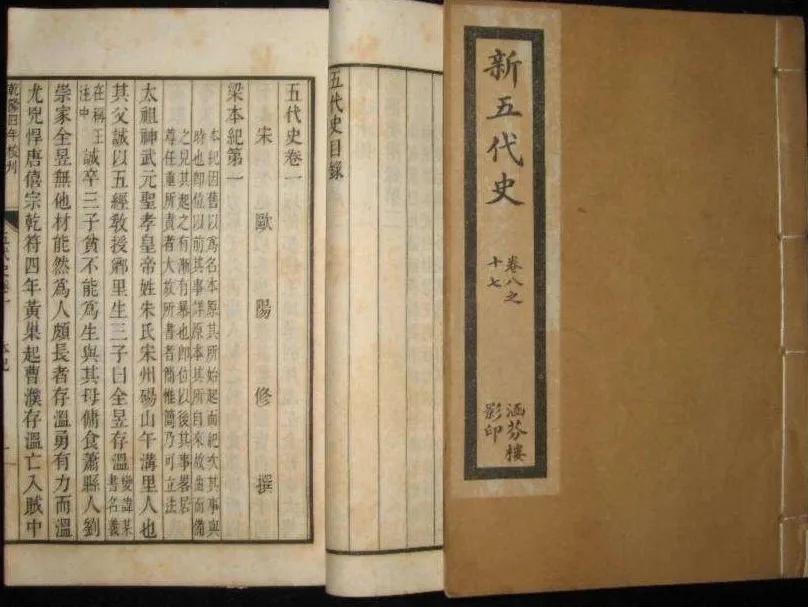 新五代史
卷八之
十七
涵芬樓
影印
五代史目錄
五代史卷一
宋 歐 陽 修 撰
梁本紀第一
本紀因舊以爲名本原其所始起而紀次其事與
時也即位以前其事詳原本其所自來故曲而備
之見其起之有漸有暴也即位以後其事畧居
尊任重所責者大故所書者簡惟簡乃可立法
太祖神武元聖孝皇帝姓朱氏宋州碭山午溝里人也
其父誠以五經教授鄉里生三子曰全昱存溫變諱某書名義
在稱王注中誠卒三子貧不能爲生與其母傭食蕭縣人劉
崇家全昱無他材能然爲人頗長者存溫勇有力而溫
尤兇悍唐僖宗乾符四年黃巢起曹濮存溫亡入賊中
乾隆四年校刊